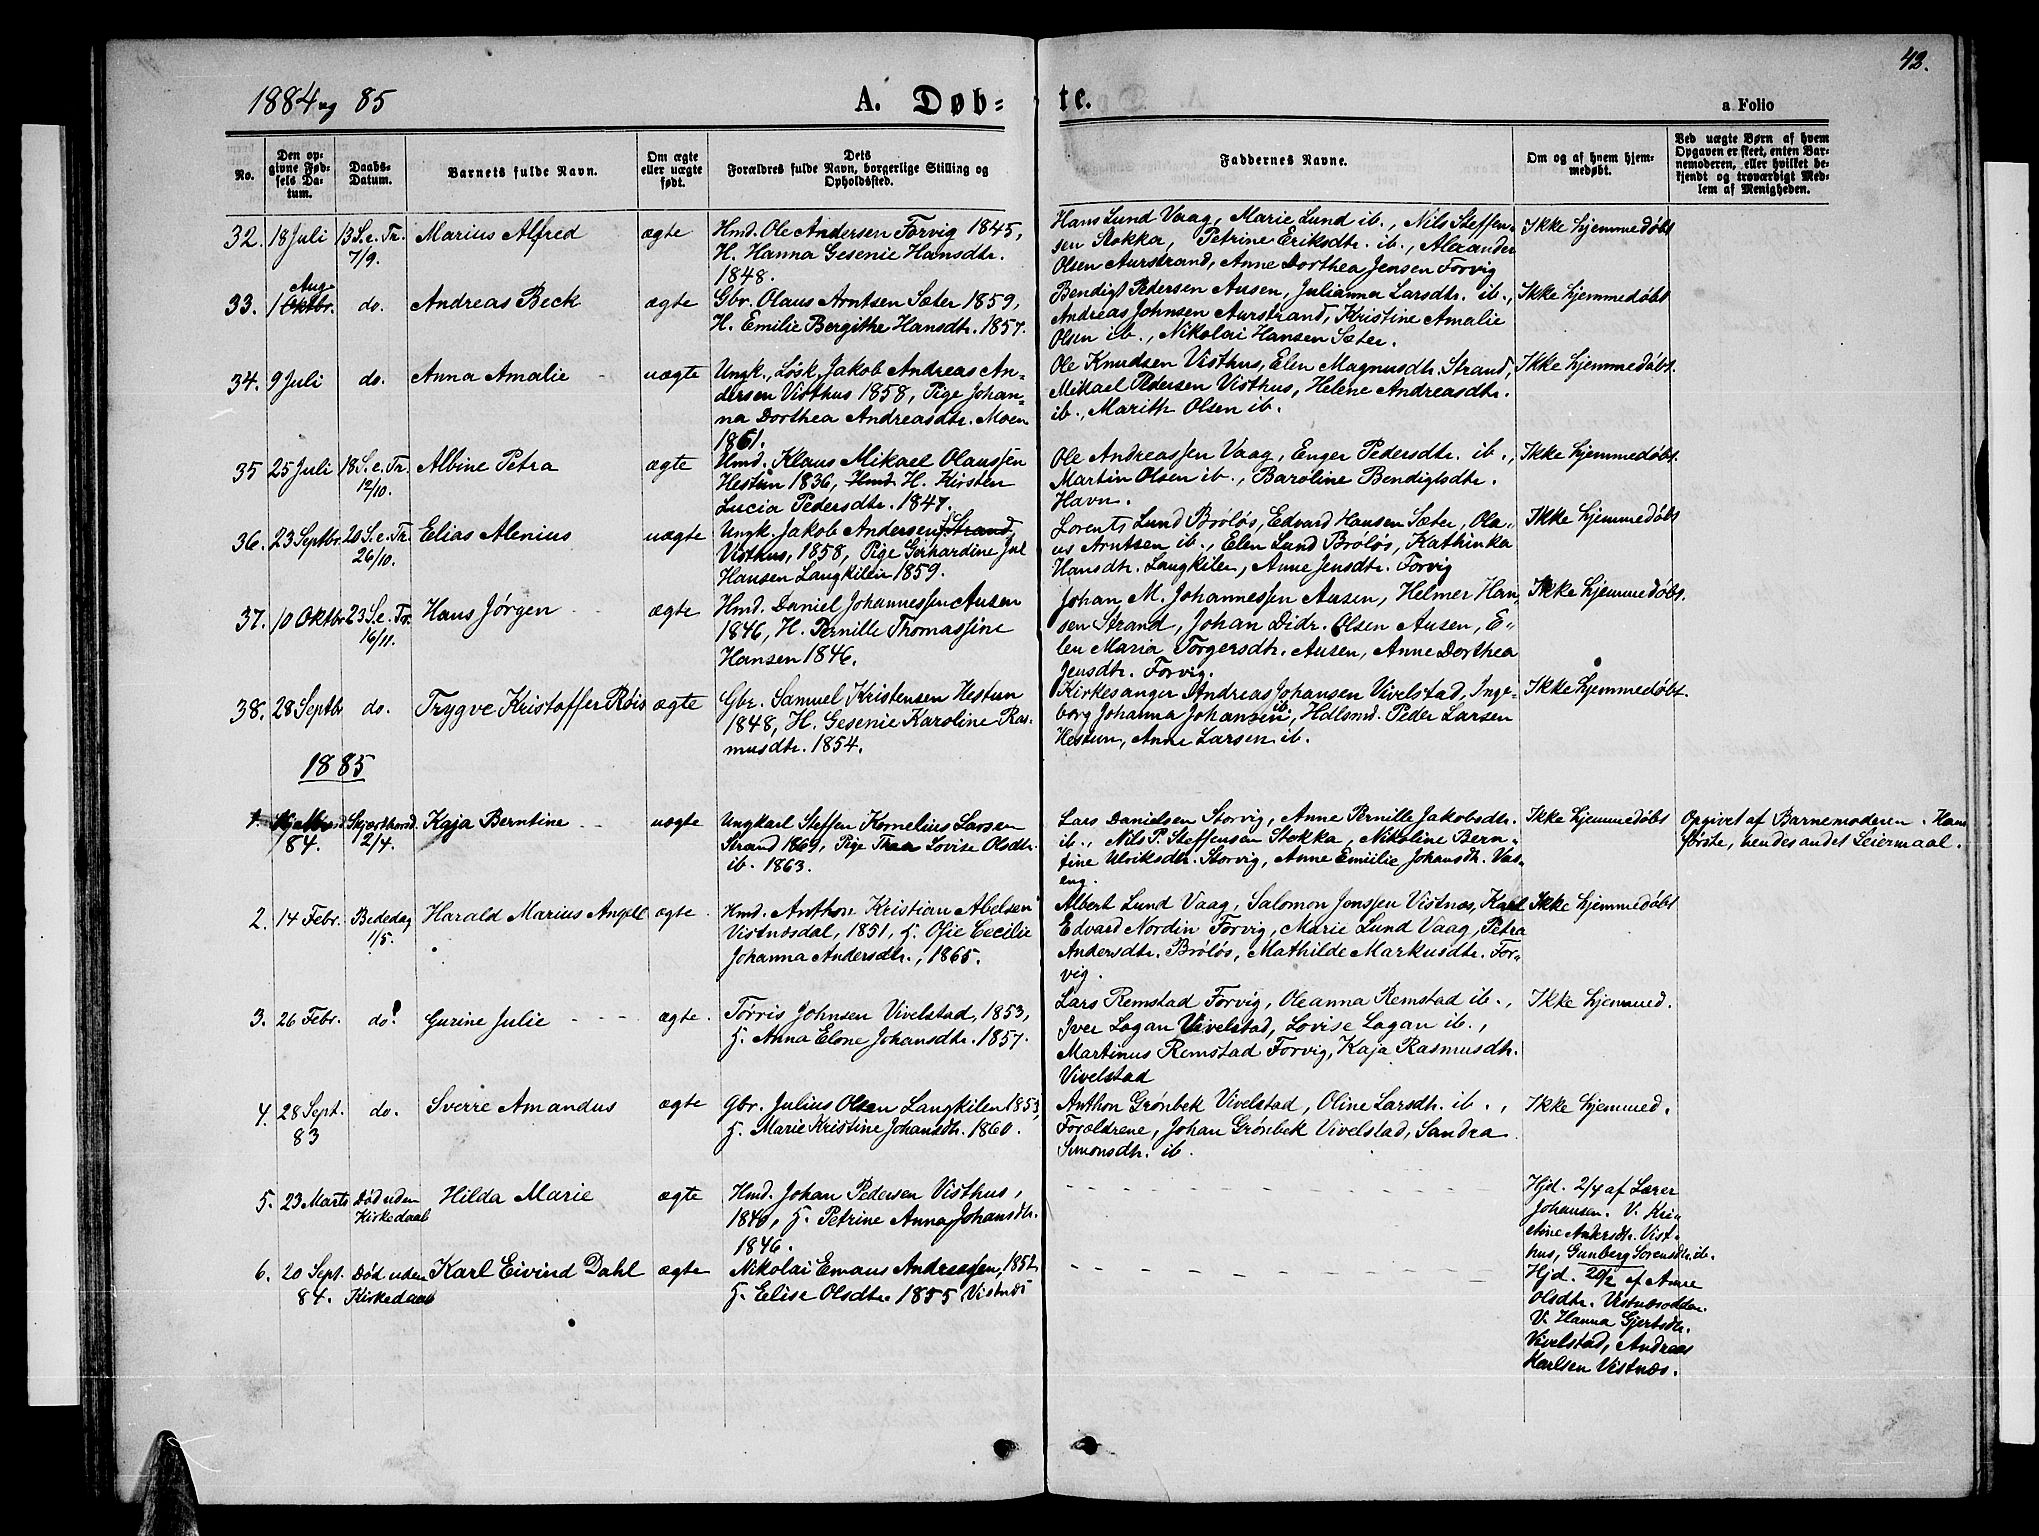 42.
1884 og 85
A. Døb-
te.
a Folio
No.
Den op-
givne Fød-
sels Da-
tum.
Daabs-
Datum.
Barnets fulde Navn.
Om ægte
eller uægte
født.
Dets
Forældres fulde Navn, borgerlige Stilling og
Opholdssted.
Faddernes Navne.
Om og af hvem hjem-
medøbt.
Ved uægte Børn af hvem
Opgaven er skeet, enten Bar-
nemoderen, eller hvilket be-
kjendt og troværdigt Med-
lem af Menigheden.
32.
18 Juli
13 S. e. Tr.
7/9.
Marius Alfred
ægte
Hmd. Ole Andersen Forvig 1845,
H. Hanna Gesenie Hansdtr.
1848.
Hans Lund Vaag, Marie Lund ib., Nils Steffen-
sen Stokka, Petrine Eriksdtr. ib., Alexander
Olsen Aurstrand, Anne Dorthea Jensen Forvig
Ikke hjemmedøbt
33.
Aug.
1 Oktbr.
do.
Andreas Beck
ægte
Gbr. Olaus Arntsen Sæter 1859,
H. Emilie Bergithe Hansdtr. 1857.
Bendigt Pedersen Ausen, Julianna Larsdtr. ib.,
Andreas Johnsen Aurstrand, Kristine Amalie
Olsen ib., Nikolai Hansen Sæter.
Ikke hjemmedøbt
34.
9 Juli
do.
Anna Amalie
uægte
Ungk., Løsk, Jakob Andreas An-
dersen Visthus 1858, Pige Johan-
na Dorthea Andreasdtr. Moen
1861.
Ole Knudsen Visthus, Elen Magnusdtr. Strand,
Mikael Pedersen Visthus, Helene Andreasdtr.
ib., Marith Olsen ib.
Ikke hjemmedøbt.
35
25 Juli
18 S. e. Tr.
12/10.
Albine Petra
ægte
Hmd. Klaus Mikael Olaussen
Hestun 1836, Hmd H. Kirsten
Lucia Pedersdtr. 1847.
Ole Andreassen Vaag, Enger Pedersdtr. ib.,
Martin Olsen ib., Baroline Bendigtsdtr.
Havn.
Ikke hjemmedøbt.
36.
23 Septbr.
20 S. e. Tr.
26/10.
Elias Alenius
uægte
Ungk. Jakob Andersen Strand
Visthus, 1858, Pige Gerhardine Jul
Hansen Langkilen 1859.
Lorents Lund Bröløs, Edvard Hansen Sæter, Ola-
us Arntsen ib., Elen Lund Bröløs, Kathinka
Hansdtr. Langkilen, Anne Jensdtr. Forvig
Ikke hjemmedøbt
37.
10 Oktbr
23 S. e. Tr.
16/11.
Hans Jørgen
ægte
Hmd. Daniel Johannessen Ausen
1846, H. Pernille Thomassine
Hansen 1846.
Johan M. Johannessen Ausen, Helmer Han-
sen Strand, Johan Didr. Olsen Ausen, E-
len Maria Torgersdtr. Ausen, Anne Dorthea
Jensdtr. Forvig.
Ikke hjemmedøbt.
38.
28 Septbr
do.
Trygve Kristoffer Röis
ægte
Gbr. Samuel Kristensen Hestun
1848, H. Gesenie Karoline Ras-
musdtr. 1854.
Kirkesanger Andreas Johansen Vivelstad, Inge-
borg Johanna Johansen ib., Hdlsmd. Peder Larsen
Hestun, Anne Larsen ib.
Ikke hjemmedøbt.
1885
1.
84.
Skjærthorsd
2/4.
Kaja Berntine
uægte
Ungkarl Steffen Kornelius Larsen
Strand 1869, Pige Thea Lovise Olsdtr.
ib. 1863.
Lars Danielsen Storvig, Anne Pernille Jakobsdtr.
ib., Nils P. Steffensen Stokka, Nikoline Bern-
tine Ulriksdtr. Storvig, Anne Emilie Johansdtr. Vas-
eng.
Ikke hjemmedøbt
Opgivet af Barnemoderen. Hans
første, hendes andet Leiermaal.
2.
14 Febr.
Bededag
1/5.
Harald Marius Angell
ægte.
Hmd. Anthon Kristian Abelsen
Vistnæsdal, 1851, H. Ofie Cecilie
Johanna Andersdtr., 1865.
Albert Lund Vaag, Salomon Jonssen Vistnæs, Karl
Edvard Nordin Forvig, Marie Lund Vaag, Petra
Andersdtr. Bröløs, Mathilde Markusdtr. For-
vig.
Ikke hjemmedøbt
3.
26 Febr.
do.
Gurine Julie
ægte.
Törris Johnsen Vivelstad, 1853,
H. Anna Elone Johansdtr. 1857.
Lars Remstad Forvig, Oleanna Remstad ib.,
Iver Lagan Vivelstad, Lovise Lagan ib.,
Martinus Remstad Forvig, Kaja Rasmusdtr.
Vivelstad
Ikke hjemmed.
4.
28 Sept.
83
do.
Sverre Amandus
ægte
Gbr. Julius Olsen Langkilen 1853,
H. Marie Kristine Johansdtr. 1860.
Anthon Grønbek Vivelstad, Oline Larsdtr. ib.,
Forældrene, Johan Grønbek Vivelstad, Sandra
Simonsdtr. ib.
Ikke hjemmed.
5.
23 Marts
Død uden
Kirkedaab
Hilda Marie
ægte
Hmd. Johan Pedersen Visthus,
1840, H. Petrine Anna Johansdtr.
1846.
Hjd. 2/4 af Lærer
Johansen. V. Kri-
stine Andersdtr. Vist-
hus, Gunberg Sörensdtr. ib.
6.
20 Sept.
84.
Død uden
Kirkedaab
Karl Eivind Dahl
ægte
Nikolai Emaus Andreassen, 1852
H. Elise Olsdtr. 1855 Vistnæs
Hjd. 20/2 af Anne
Olsdtr. Vistnæsodden.
V. Hanna Gjertsdtr.
Vivelstad, Andreas
Karlsen Vistnæs.